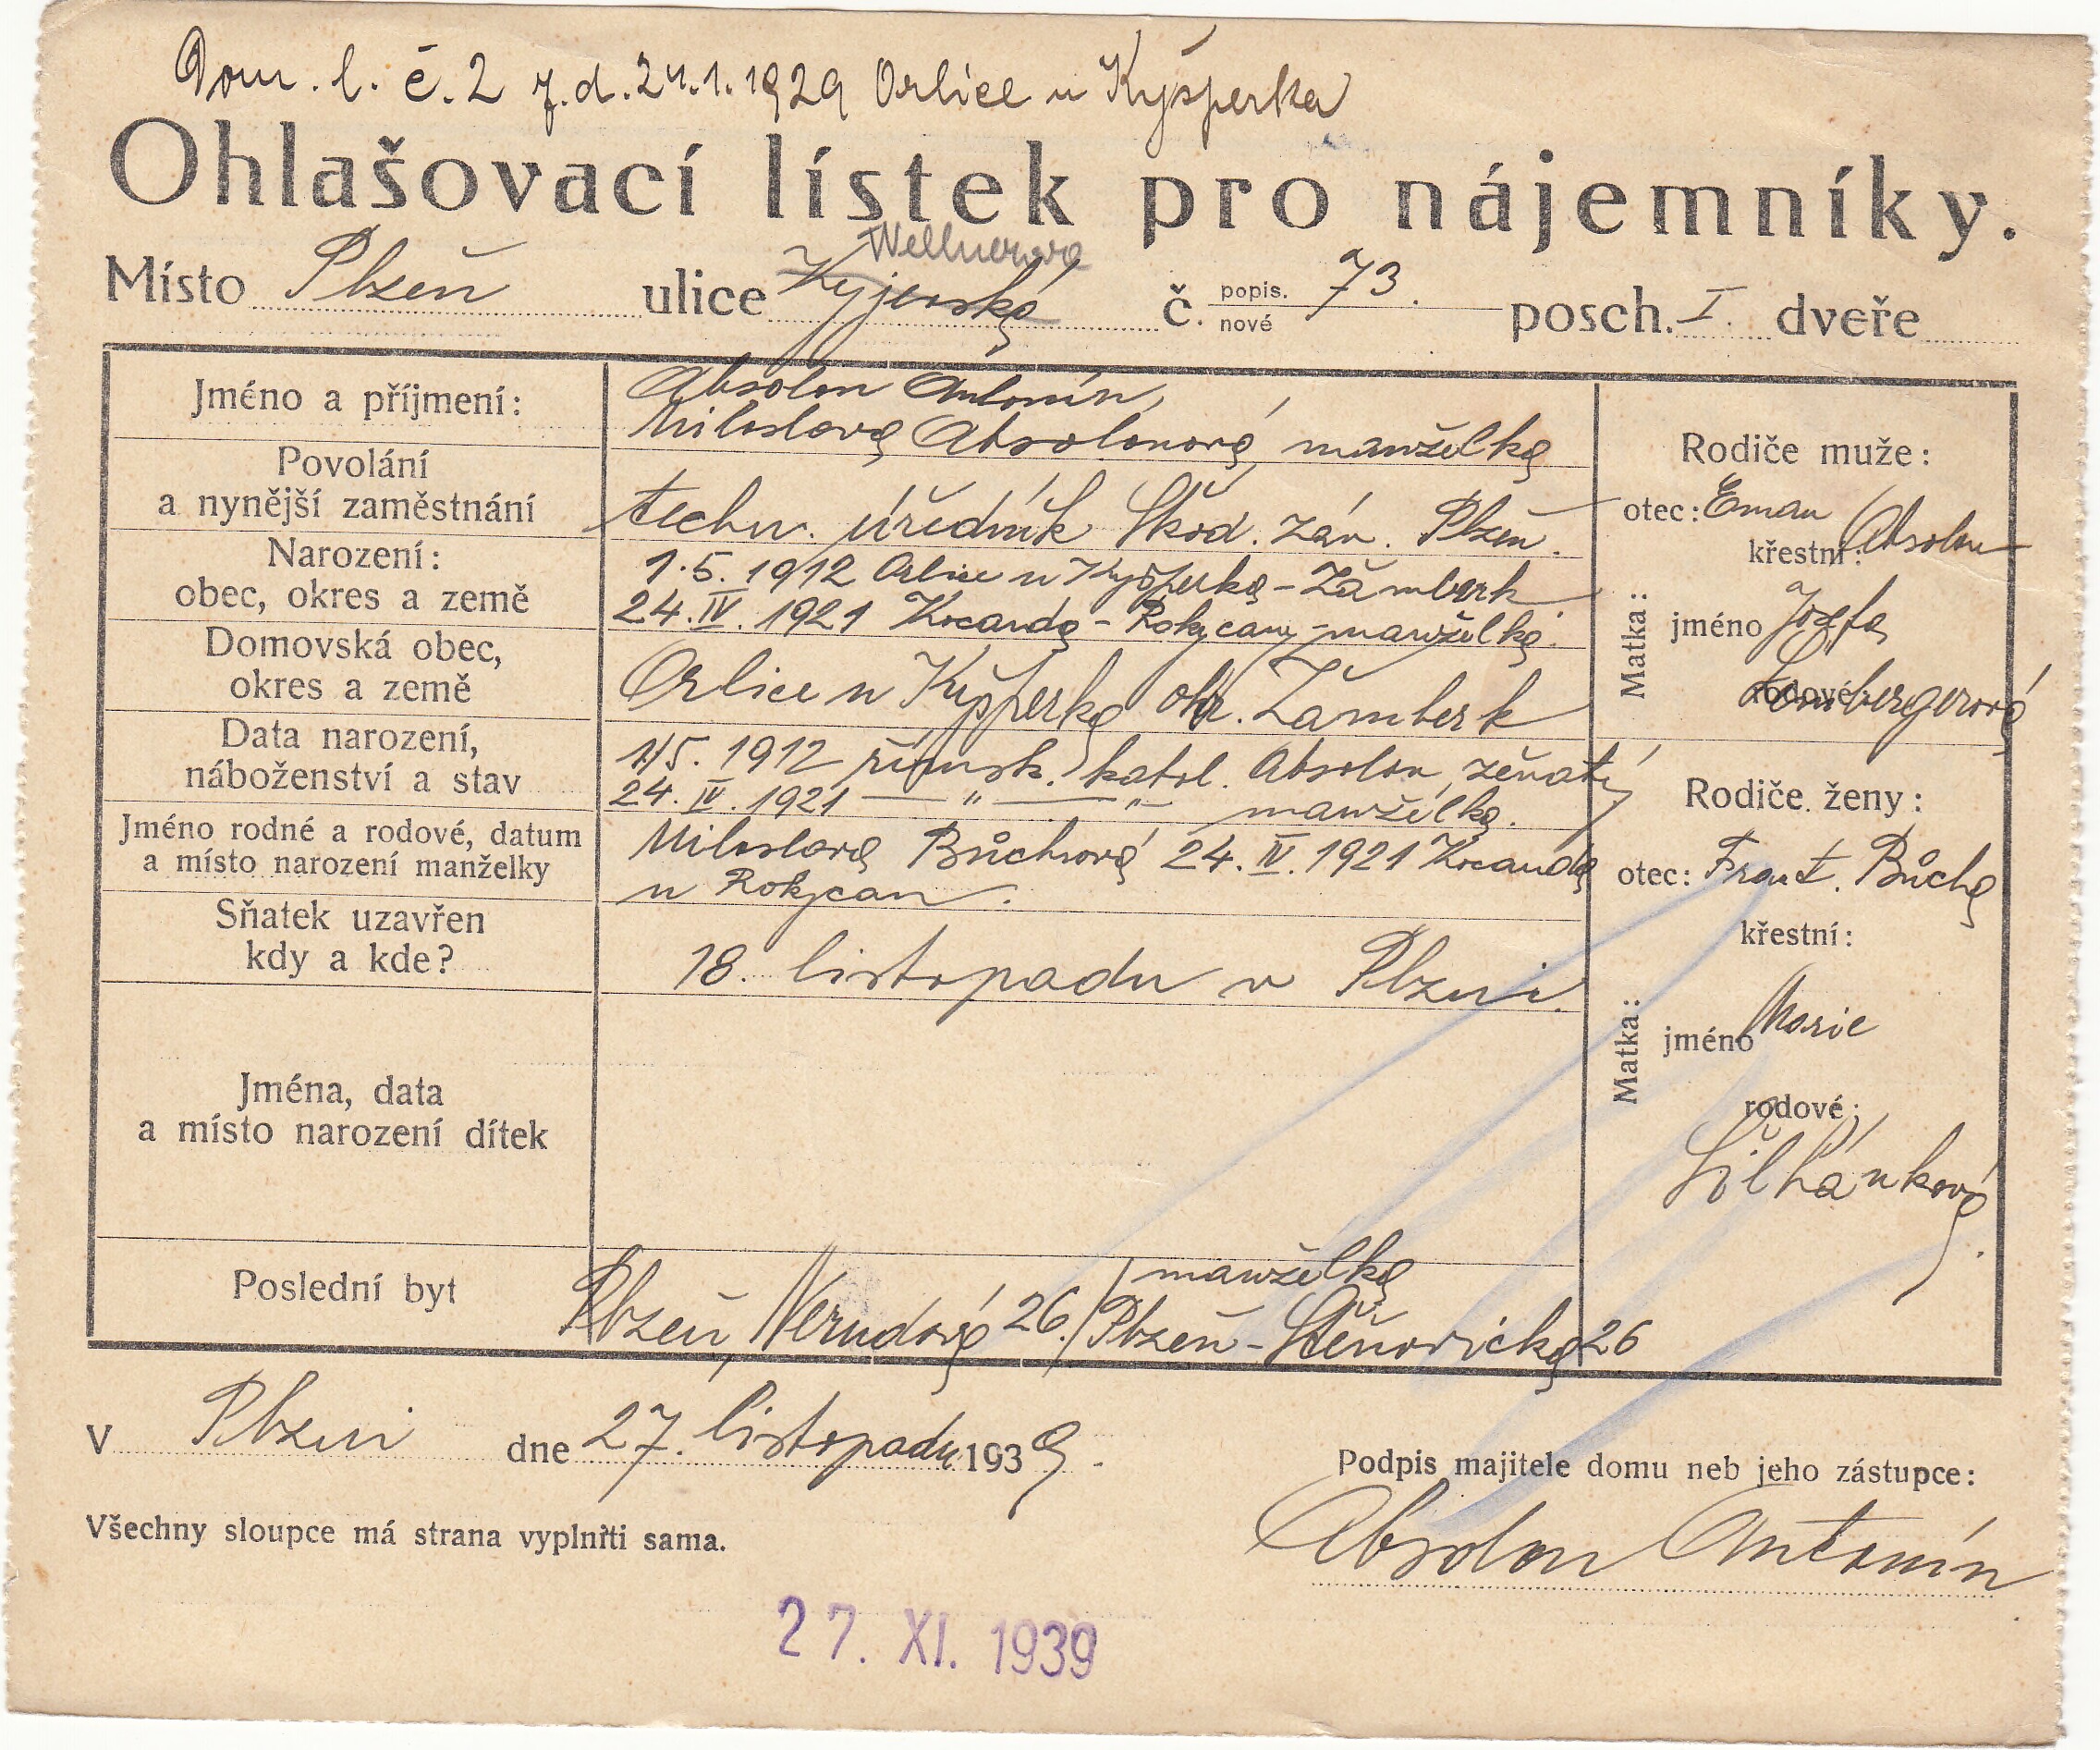 Dom. l. č. 2 z. d. 24.1.1929 Orlice u Kyšperka
Ohlašovací lístek pro nájemníky.
Wellnerova
Místo Plzeň ulice Kyjevská č. popis. nové 73. posch. I. dveře
Jméno a příjmení: Absolon Antonín,
Miloslava Absolonová, manželka
Povolání a nynější zaměstnání
techn. úředník Škod. záv. Plzeň.
Narození: obec, okres a země
1.5.1912 Orlice u Kyšperka - Žamberk
24.IV.1921 Kocanda - Rokycany - manželka.
Domovská obec, okres a země
Orlice u Kyšperka okr. Žamberk
Data narození, náboženství a stav
1/5. 1912 římsk. katol. Absolon, ženatý
24.IV.1921 — " — " — manželka.
Jméno rodné a rodové, datum a místo narození manželky
Miloslava Bůchová 24.IV.1921 Kocanda
u Rokycan.
Sňatek uzavřen kdy a kde?
18. listopadu v Plzni.
Jména, data
a místo narození dítek
Poslední byt
manželka
Plzeň, Nerudova 26./Plzeň - Štěnovická 26
Rodiče muže:
otec: Eman Absolon
křestní:
Matka: jméno Josefa
rodové
Rodiče ženy:
otec: Frant. Bůcha
křestní:
Matka: jméno Marie
rodové:
Šilhánková.
V Plzni dne 27. listopadu 1939.
Podpis majitele domu neb jeho zástupce:
Všechny sloupce má strana vyplniti sama.
Absolon Antonín
27. XI. 1939